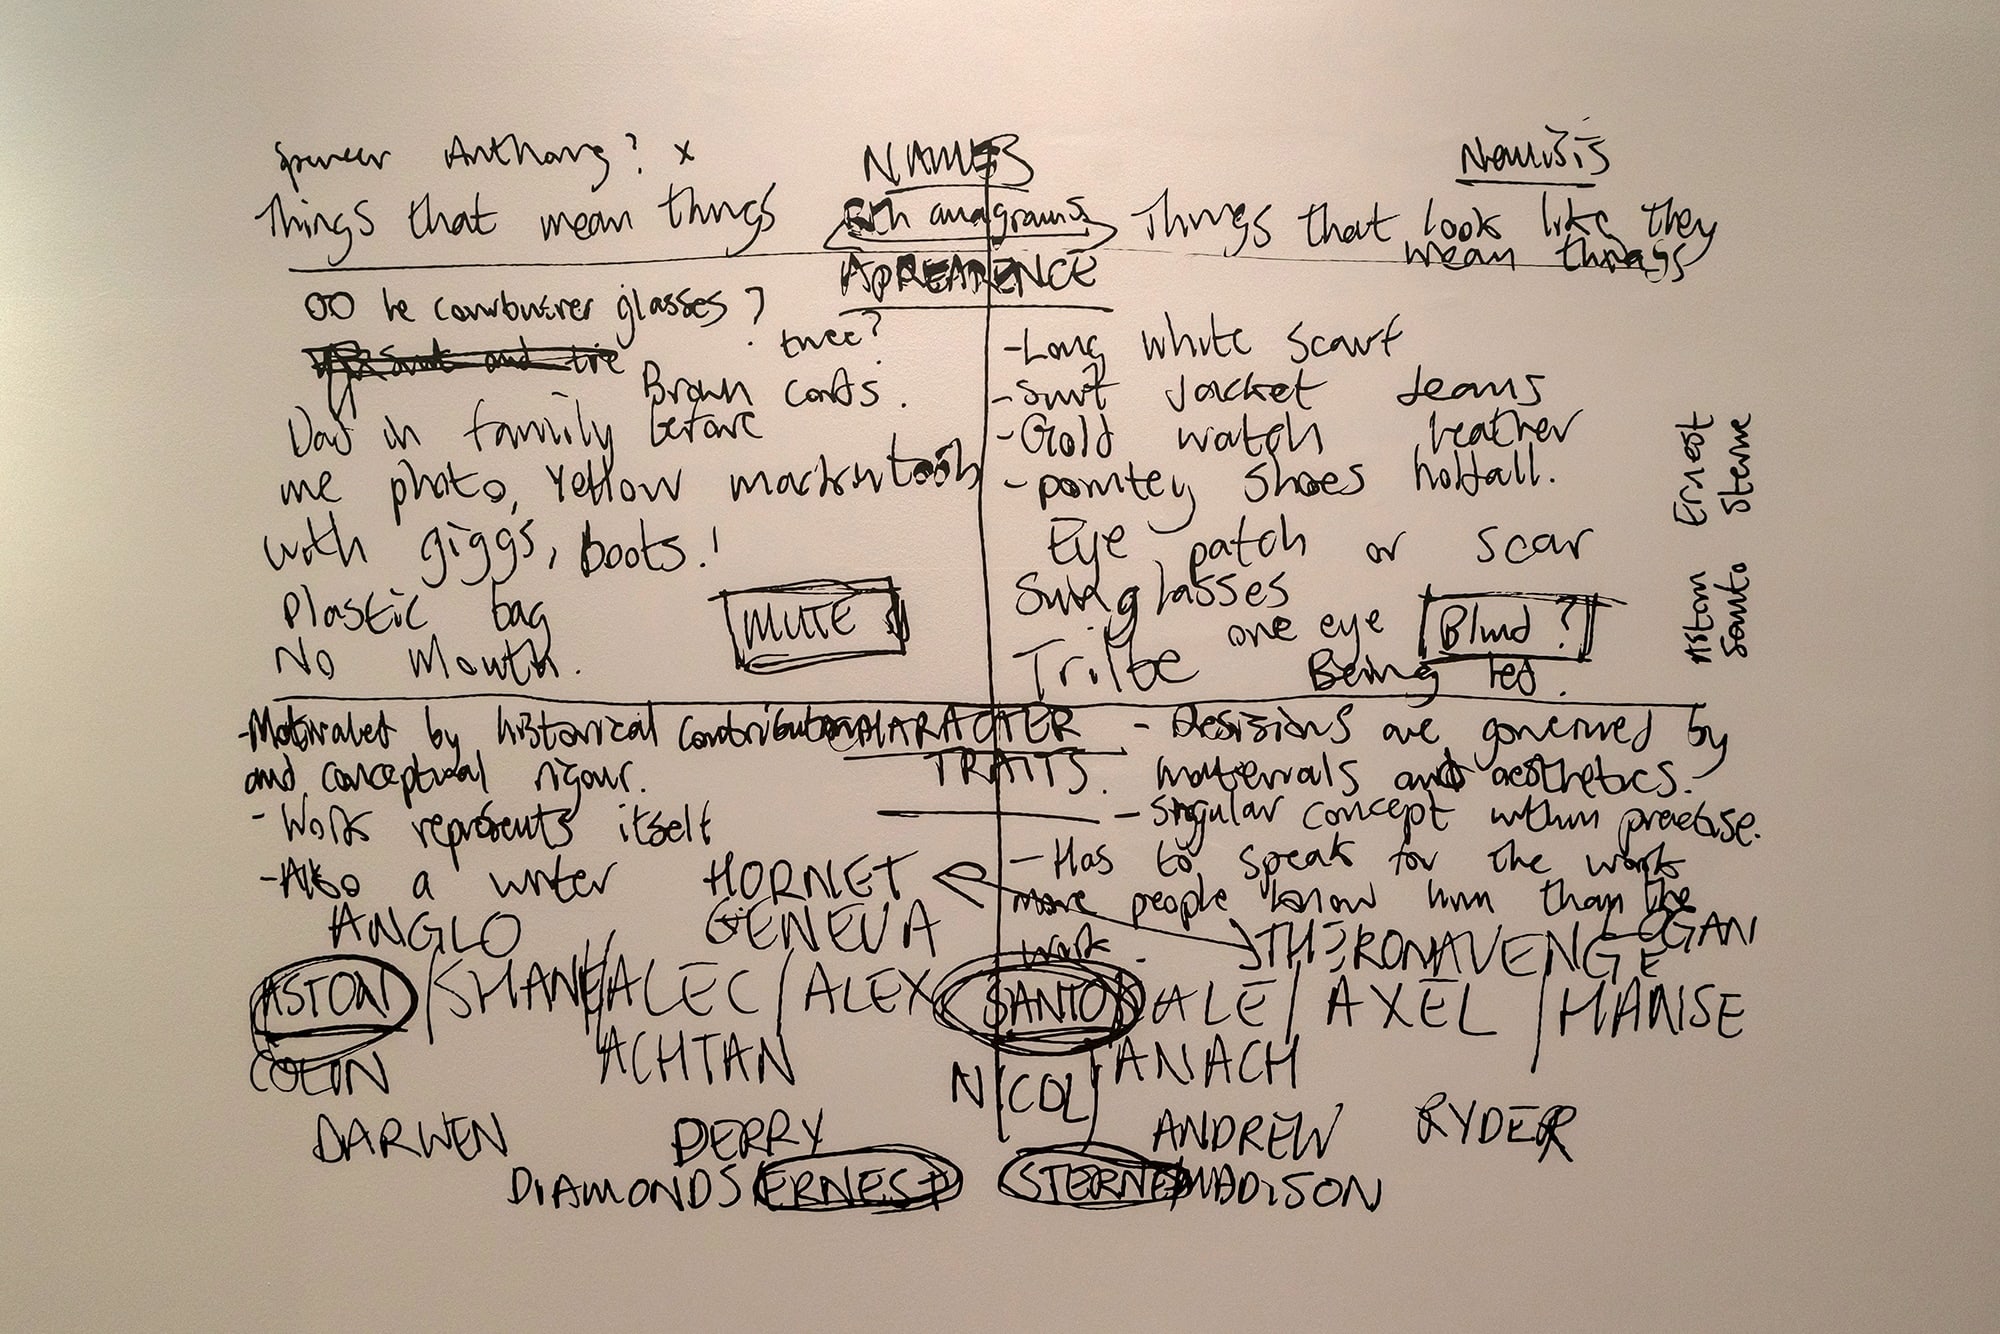 Spencer Anthony? x
NAMES
Nemisis
Things that mean things
Both anagrams
Things that look like they
mean things
APPEARENCE
glasses?
twee?
suit and tie
Brown cords.
Dad in family before
me photo, Yellow mackintosh
with giggs, boots!
Plastic bag
No Mouth.
MUTE
-Long white scarf
-Suit Jacket Jeans
-Gold watch leather
-pointey shoes holdall.
Eye patch or scar
Sunglasses
one eye
Blind?
Trilbe
Being led.
Ernest
Sterne
Aston
Santo
CHARACTER
TRAITS.
-Motivated by historical contribution
and conceptual rigour.
-Work represents itself
-Also a writer
-Desisions are governed by
materials and aesthetics.
-Singular concept within practise.
-Has to speak for the work
more people know him than the
work.
HORNET
ANGLO
GENEVA
THERON
AVENGE
OGAN
ASTON / SHANE / ALEC / ALEX
SANTO / ALE / AXEL / HANSE
COLIN
ACHTAN
NICOL
ANACH
DARWEN
DERRY
ANDREW
RYDER
DIAMONDS
ERNEST
STERNE
MADISON